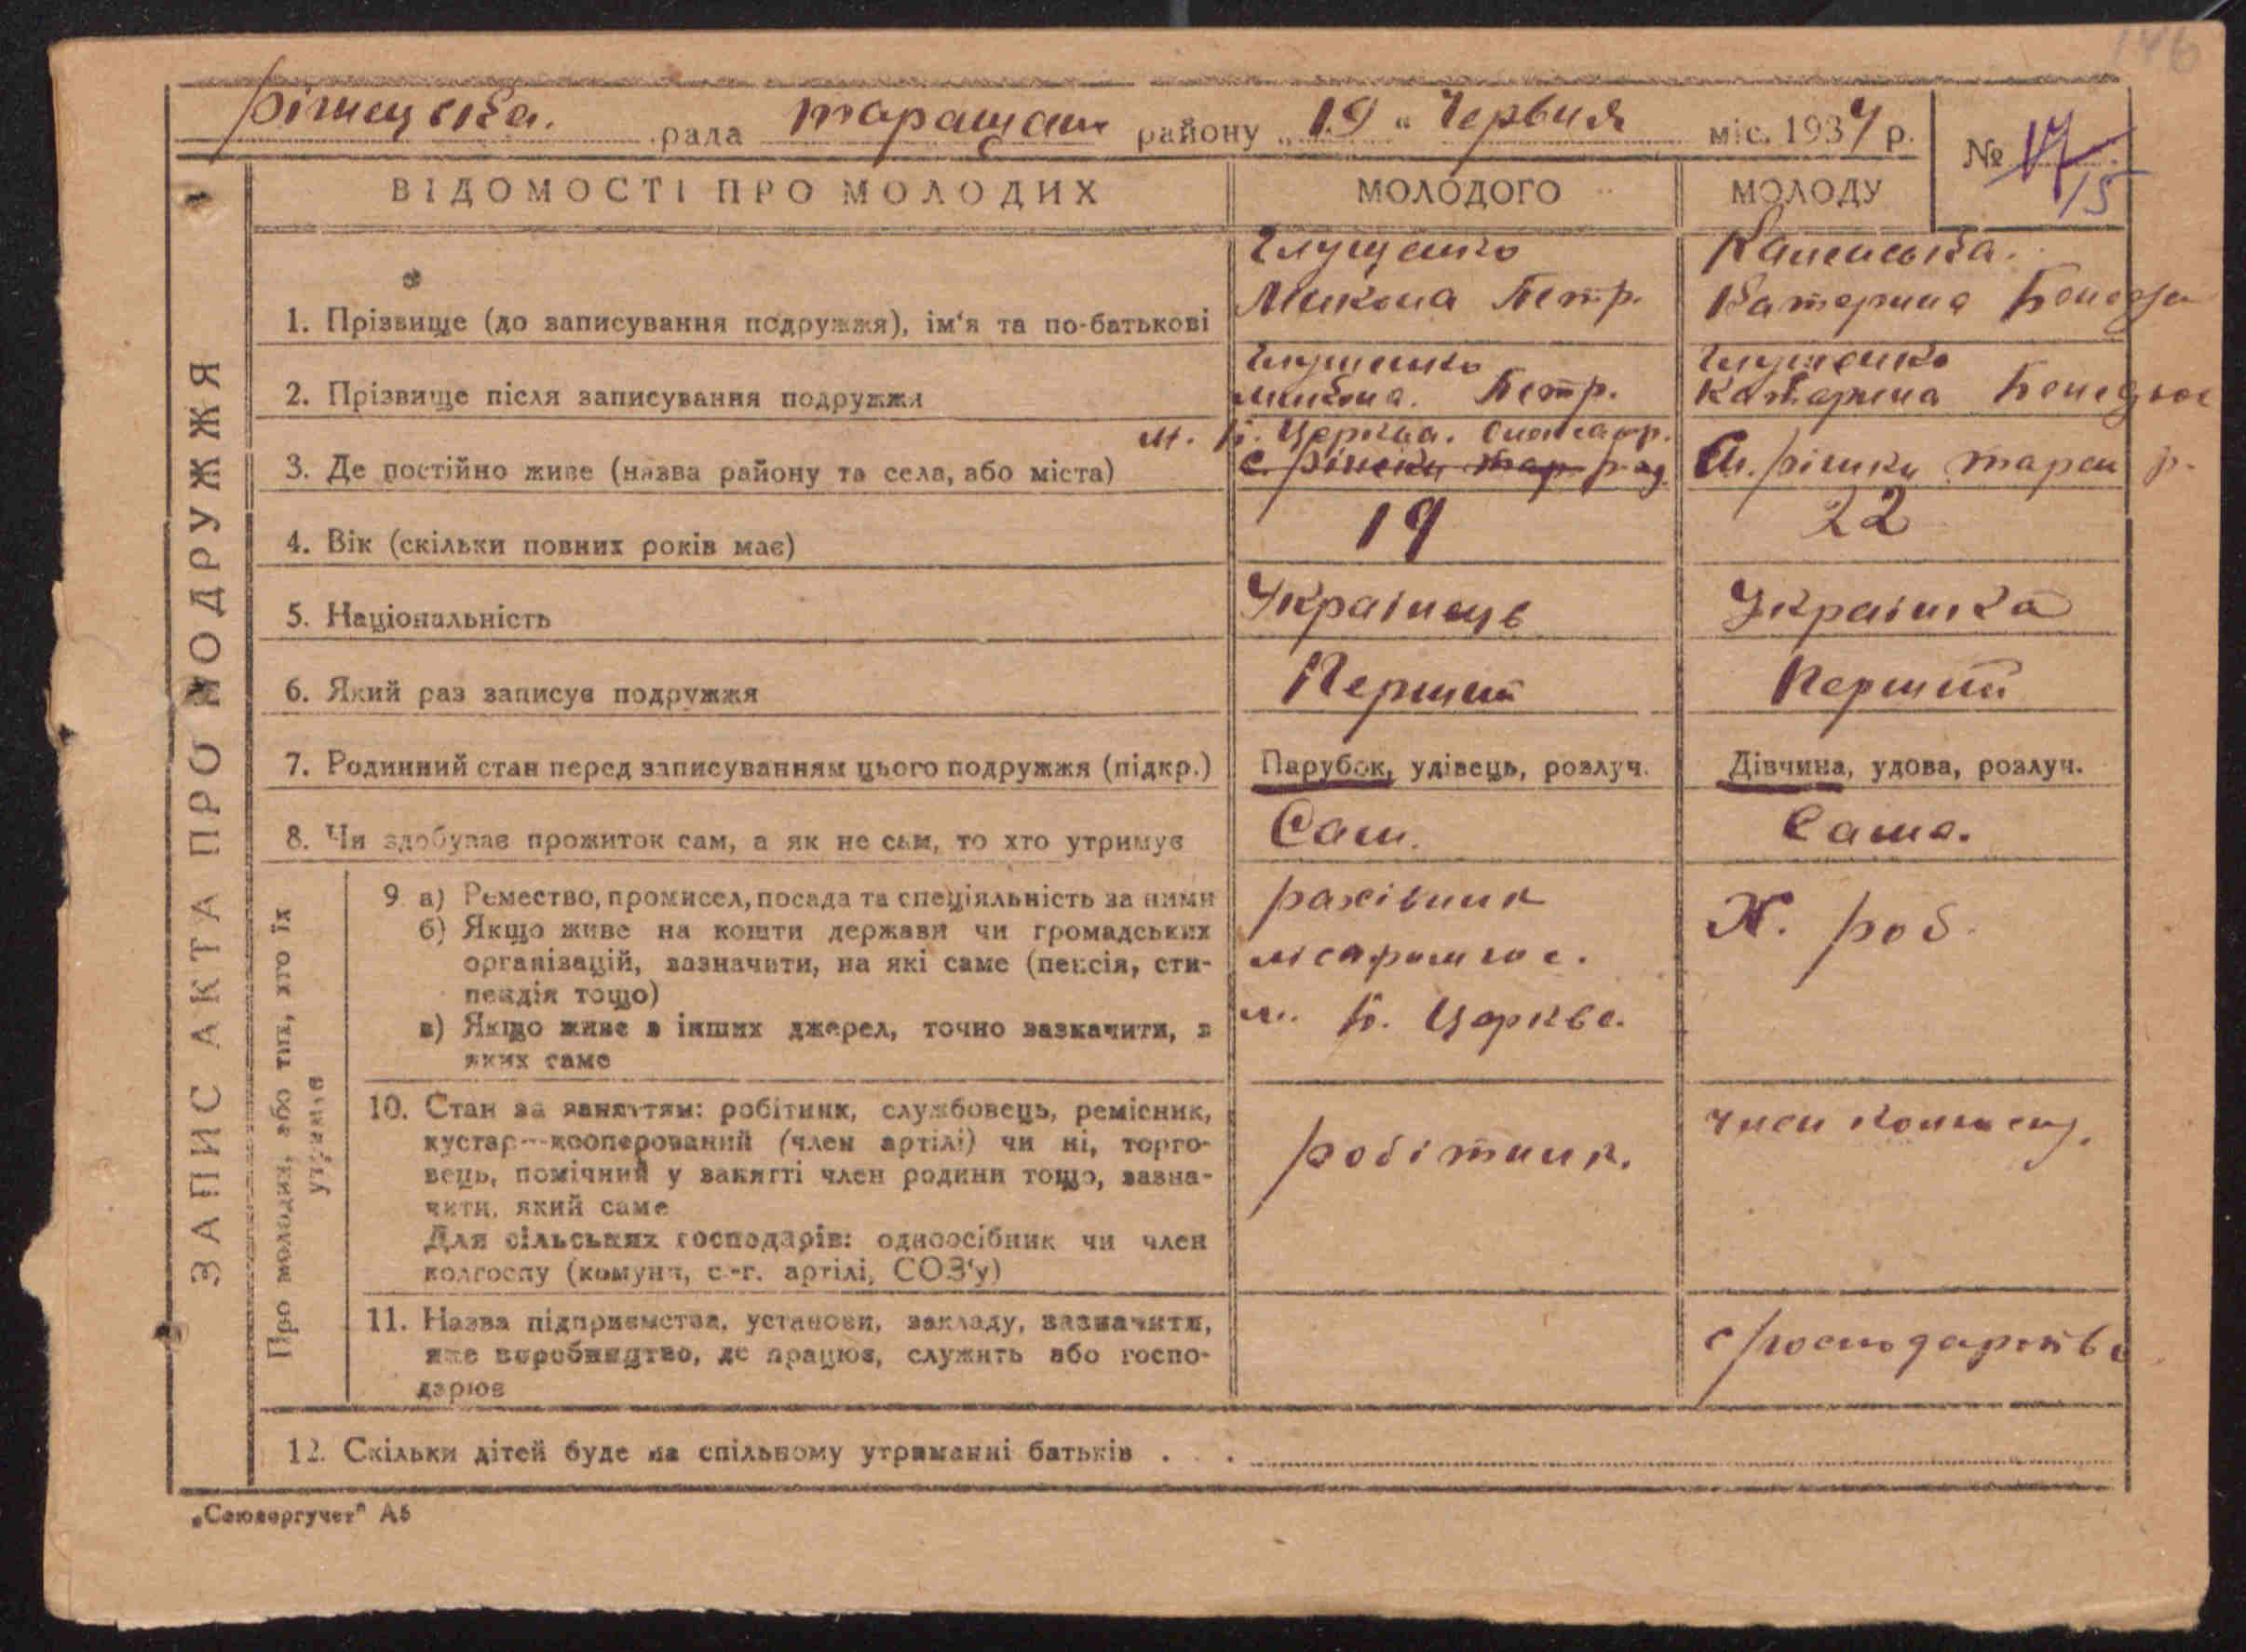 146
рішецька. рада таращан району „ 19 “ Червня міс. 1934 р.
№ 17
15
ВІДОМОСТІ ПРО МОЛОДИХ
МОЛОДОГО
МОЛОДУ
ЗАПИС АКТА ПРО ПОДРУЖЖЯ
1. Прізвище (до записування подружжя), ім'я та по-батькові
Глущенко
Микола Петр.
Каменська.
Катерина
2. Прізвище після записування подружжя
Глущенко
Микола. Петр.
Глущенко
Катерина
3. Де постійно живе (назва району та села, або міста)
м. Б. Церква.
с.
р.
4. Вік (скільки повних років має)
19
22
5. Національність
Українець
Українка
6. Який раз записує подружжя
Перший
Перший
7. Родинний стан перед записуванням цього подружжя (підкр.)
Парубок, удівець, розлуч.
Дівчина, удова, розлуч.
8. Чи здобуває прожиток сам, а як не сам, то хто утримує
Сам.
Сама.
Про молодих, або тих, хто їх
утримує
9 а) Ремество, промисел, посада та спеціяльність за ними
б) Якщо живе на кошти держави чи громадських
організацій, зазначити, на які саме (пенсія, сти-
пендія тощо)
в) Якщо живе з інших джерел, точно зазначити, з
яких саме
рахівник
м. Б. Церкве.
Х. роб.
10. Стан за заняттям: робітник, службовець, ремісник,
кустар—кооперований (член артілі) чи ні, торго-
вець, помічний у занятті член родини тощо, зазна-
чити, який саме
Для сільських господарів: одноосібник чи член
колгоспу (комуни, с.-г. артілі, СОЗ'у)
робітник.
член
11. Назва підприємства, установи, закладу, зазначити,
яке виробництво, де працює, служить або госпо-
дарює
12. Скільки дітей буде на спільному утриманні батьків . .
„Союзоргучет" А5